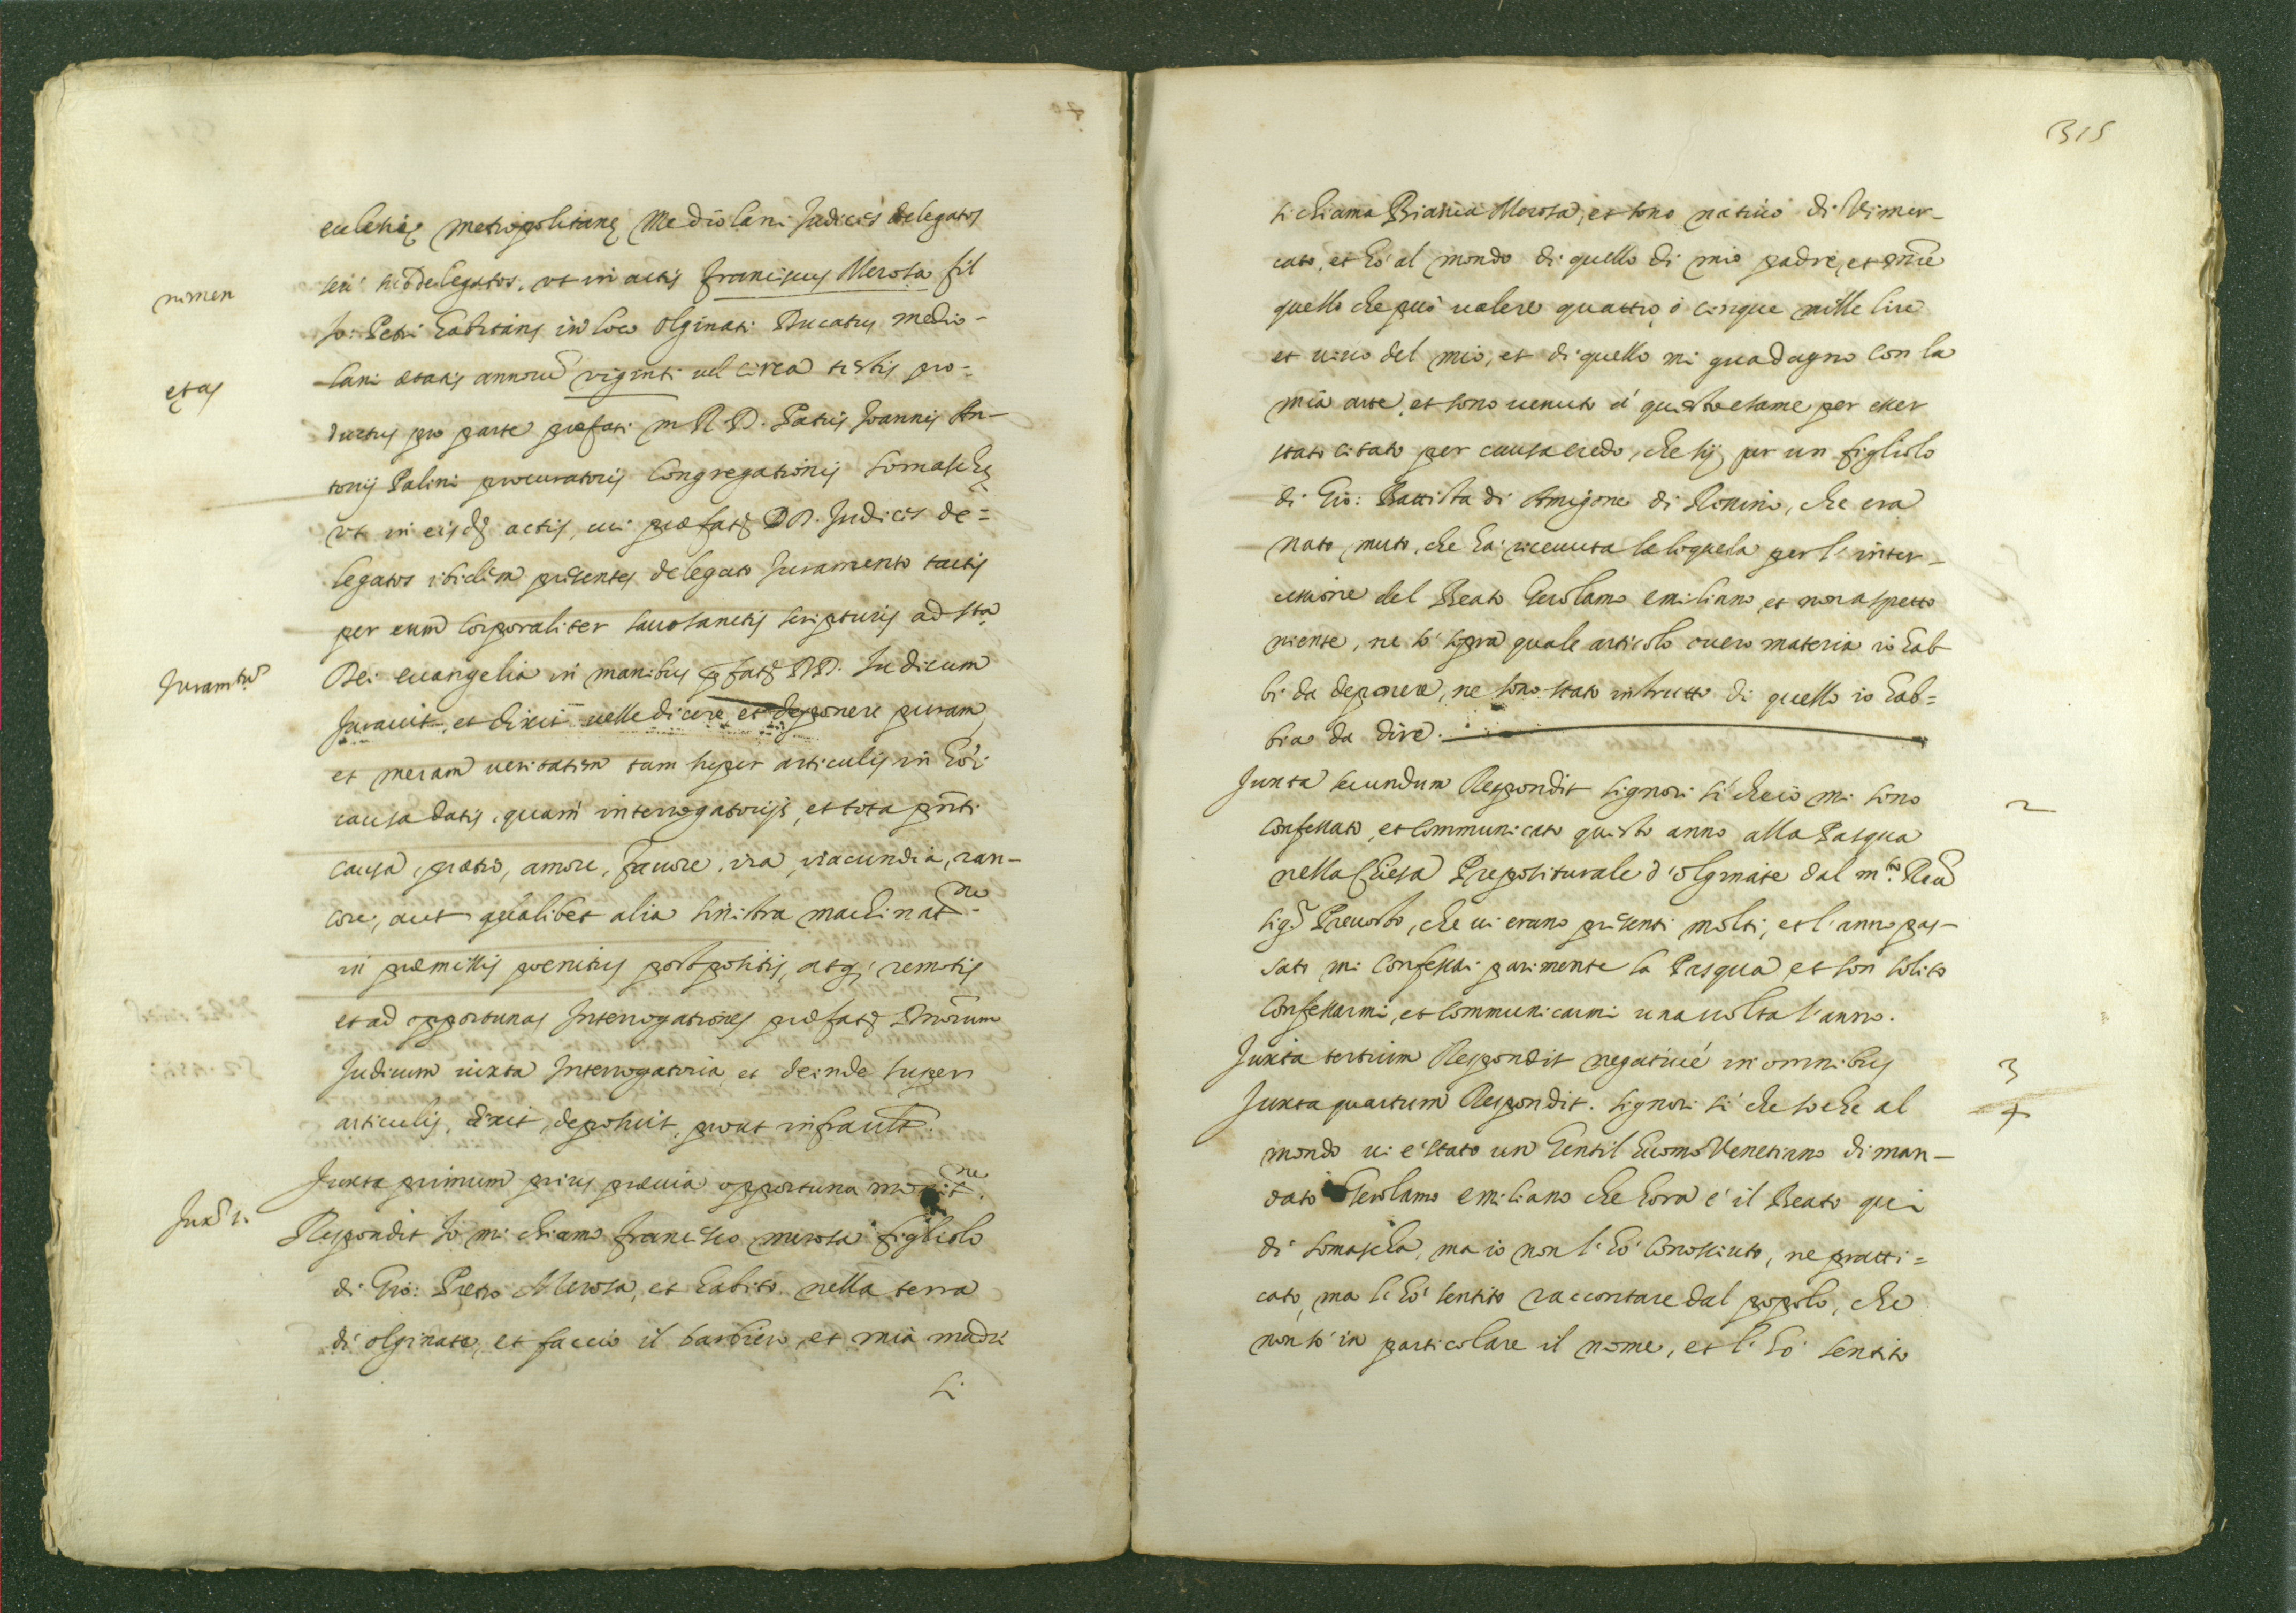 ecclesię metropolitanę Mediolani Judices delegatos
seu subdelegatos, ut in actis Franciscus Merosa fil
nomen
Jo: Petri habitans in loco Olginati Ducatus Medio-
lani ætatis annorũ viginti vel circa testis pro-
etas
ductus pro parte præfati m R. D. Patris Joannis An-
tonij Palini procuratoris Congregationis Somaschę
ut in eisdẽ actis, cui præfatj DD. Judices de=
legatos ibidem presentes delegato Juramento tactis
per eum corporaliter sacrosanctis scripturis ad sta
Dei evangelia in manibus pfatj DD. Judicum
Juramtũ
Juravit, et dixit velle dicere, et deponere puram,
et meram veritatem tam super articulis in hoc
causa datis, quam interrogatorijs, et tota pñti
causa, pretio, amore, favore, ira, iracundia, ran-
core, aut qualibet alia sinistra machinatne
in præmissis poenitus postpositis, atq; remotis
et ad opportunas Interrogationes præfatj DD. morum
Judicum iuxta Interrogatoria, et deinde super
articulis, dixit, deposuit, prout infra ult.
Juxta primum prius prævia opportuna monitne.
Jux.a 1.
Respondit Io mi chiamo Francesco Merosa figliolo
di Gio: Pietro Merosa, et habito nella terra
di Olginate, et faccio il barbiero, et mia madre
si
315
si chiama Bianca Merosa, et sono nativo di Vimer-
cato, et hò al mondo di quello di mio padre, et mie
quello che può valere quattro, ò cinque mille lire
et vivo del mio, et di quello mi guadagno con la
mia arte, et sono venuto à questo esame per esser
stato citato per causa credo, che sij per un figliolo
di Gio: Battista di Amigone di Ronino, che era
nato muto, che hà ricevuta la loquela per l'inter-
cessione del Beato Gerolamo Emiliano, et non aspetto
niente, ne sò sopra quale articolo overo materia io hab
bi da deponere, ne sono stato instrutto di quello io hab=
bia da dire.
Juxta secundum Respondit signori sì che io mi sono
2
confessato, et communicato questo anno alla Pasqua
nella Chiesa Prepositurale d'Olginate dal m.to Reu
sig.r Prevosto, che vi erano presenti molti, et l'anno pas-
sato mi confessai parimente la Pasqua, et son solito
confessarmi, et communicarmi una volta l'anno.
Juxta tertium Respondit negativè in omnibus
3
Juxta quartum Respondit. signori sì che sò che al
4
mondo vi è stato un Gentil'huomo Venetiano diman-
dato Gerolamo Emiliano che hora è il Beato qui
di Somascha, ma io non l'hò conosciuto, ne pratti=
cato, ma l'hò sentito raccontare dal popolo, che
non sò in particolare il nome, et l'hò sentito